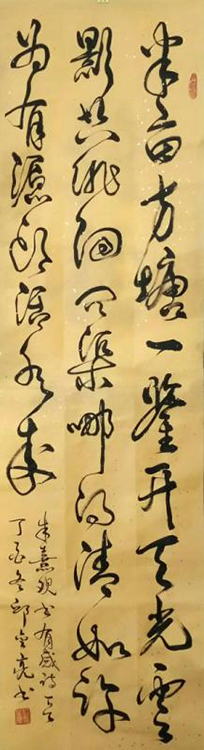 半亩方塘一鉴开天光云
影共徘徊问渠哪得清如许
为有源头活水来
朱熹观书有感诗一首
丁酉冬邱亮书